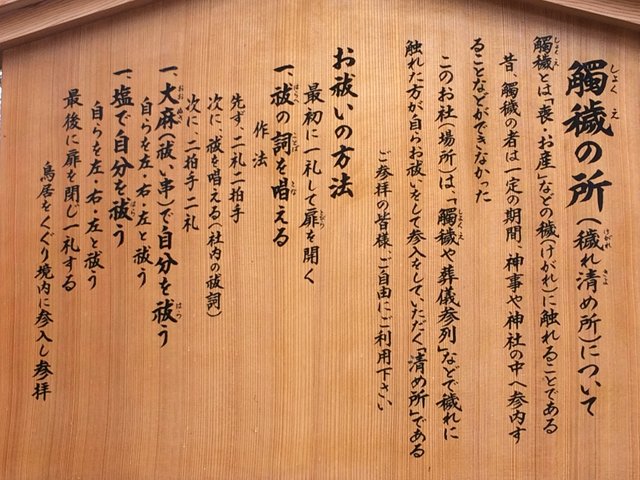 觸穢の所(穢れ清め所)について
觸穢とは「喪・お産」などの穢(けがれ)に触れることである
昔、觸穢の者は一定の期間、神事や神社の中へ参内す
ることなどができなかった
このお社(場所)は、「觸穢や葬儀参列」などで穢れに
触れた方が自らお祓いをして参入をして、いただく「清め所」である
ご参拝の皆様、ご自由にご利用下さい
お祓いの方法
最初に一礼して扉を開く
一、祓の詞を唱える
作法
先ず、二礼二拍手
次に、祓を唱える(社内の祓詞)
次に、二拍手二礼
一、大麻(祓い串)で自分を祓う
自らを左・右・左と祓う
一、塩で自分を祓う
自らを左・右・左と祓う
最後に扉を閉じ一礼する
鳥居をくぐり境内に参入し参拝